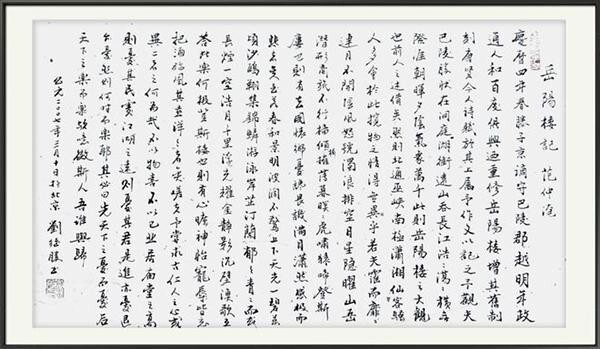 岳陽樓記 范仲淹
慶曆四年春滕子京謫守巴陵郡越明年政
通人和百廢俱興乃重修岳陽樓增其舊制
刻唐賢今人詩賦於其上屬予作文以記之予觀夫
巴陵勝狀在洞庭湖銜遠山吞長江浩浩湯湯橫無
際涯朝暉夕陰氣象萬千此則岳陽樓之大觀
也前人之述備矣然則北通巫峽南極瀟湘遷客騷
人多會於此覽物之情得無異乎若夫霪雨霏霏
連月不開陰風怒號濁浪排空日星隱曜山岳
潛形商旅不行檣傾楫摧薄暮冥冥虎嘯猿啼登斯
樓也則有去國懷鄉憂讒畏譏滿目蕭然感極而
悲者矣至若春和景明波瀾不驚上下天光一碧萬
頃沙鷗翔集錦鱗游泳岸芷汀蘭郁郁青青而或
長煙一空皓月千里浮光耀金靜影沉璧漁歌互
答此樂何極登斯樓也則有心曠神怡寵辱皆忘
把酒臨風其喜洋洋者矣嗟夫予嘗求古仁人之心或
異二者之為何哉不以物喜不以己悲居廟堂之高
則憂其民處江湖之遠則憂其君是進亦憂退
亦憂然則何時而樂耶其必曰先天下之憂而憂後
天下之樂而樂歟噫微斯人吾誰與歸
公元二〇〇七年三月十日於北京 劉 書